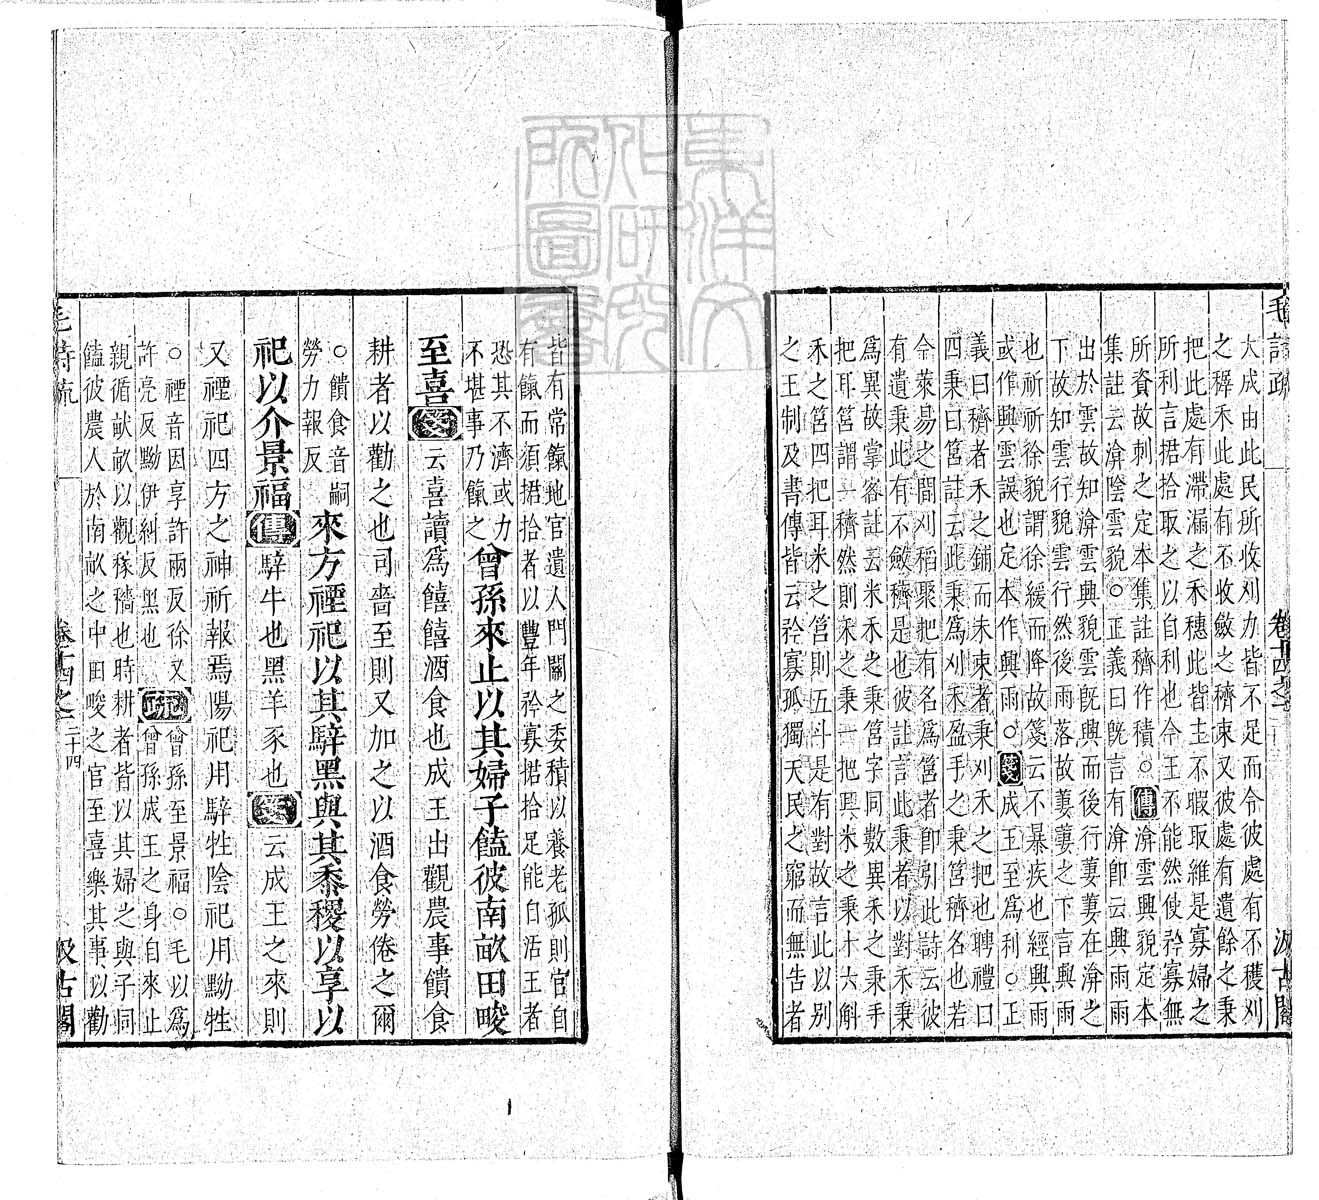 毛詩疏
卷十四之二
汲古閣
大成由此民所收刈力皆不足而令彼處有不穫刈
之穉禾此處有不收斂之穧束又彼處有遺餘之秉
把此處有滯漏之禾穗此皆主不暇取維是寡婦之
所利言捃拾取之以自利也今王不能然使矜寡無
所資故刺之定本集註穧作積○傳渰雲興貌定本
集註云渰陰雲貌○正義曰旣言有渰卽云興雨雨
出於雲故知渰雲興貌雲旣興而後行萋萋在渰之
下故知雲行貌雲行然後雨落故萋萋之下言興雨
也祈祈徐貌謂徐緩而降故箋云不暴疾也經興雨
或作興雲誤也定本作興雨○箋成王至爲利○正
義曰穧者禾之鋪而未束者秉刈禾之把也聘禮曰
四秉曰筥註云此秉爲刈禾盈手之秉筥穧名也若
今萊昜之閒刈稻聚把有名爲筥者卽引此詩云彼
有遺秉此有不斂穧是也彼註言此秉者以對禾秉
爲異故掌客註云米禾之秉筥字同數異禾之秉手
把耳筥謂一穧然則禾之秉一把耳米之秉十六斛
禾之筥四把耳米之筥則五斗是有對故言此以別
之王制及書傳皆云矜寡孤獨天民之窮而無告者
皆有常餼地官遺人門關之委積以養老孤則官自
有餼而須捃拾者以豐年矜寡捃拾足能自活王者
恐其不濟或力
不堪事乃餼之
曾孫來止以其婦子饁彼南畝田畯
至喜箋云喜讀爲饎饎酒食也成王出觀農事饋食
耕者以勸之也司嗇至則又加之以酒食勞倦之爾
○饋食音嗣
勞力報反
來方禋祀以其騂黑與其黍稷以享以
祀以介景福傳騂牛也黑羊豕也箋云成王之來則
又禋祀四方之神祈報焉陽祀用騂牲陰祀用黝牲
○禋音因享許兩反徐又
許亮反黝伊糾反黑也
疏曾孫至景福○毛以爲
曾孫成王之身自來止
親循畎畝以觀稼穡也時耕者皆以其婦之與子同
饁彼農人於南畝之中田畯之官至喜樂其事以勸
毛詩疏
卷十四之二
二十四
汲古閣
東洋文
化研究
所圖書